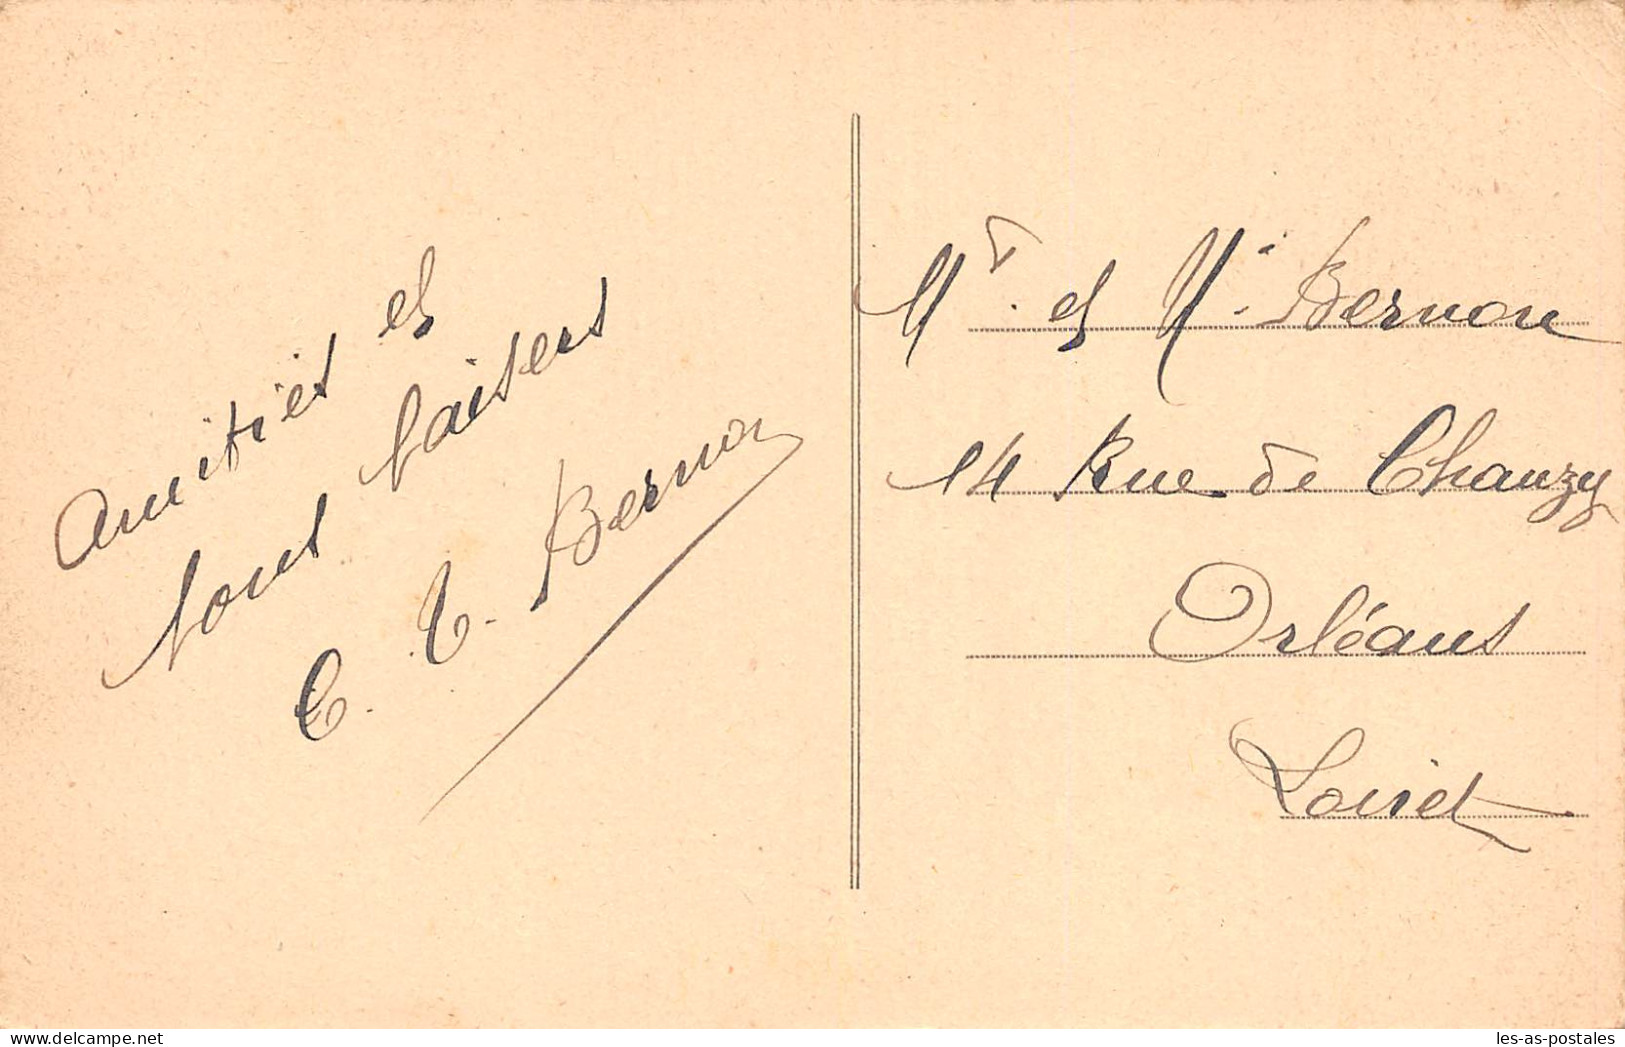 Amitiés et
bons baisers
C. C. Bernon
Mr. et M. Bernon
14 Rue de Chanzy
Orléans
Loiret
les-as-postales